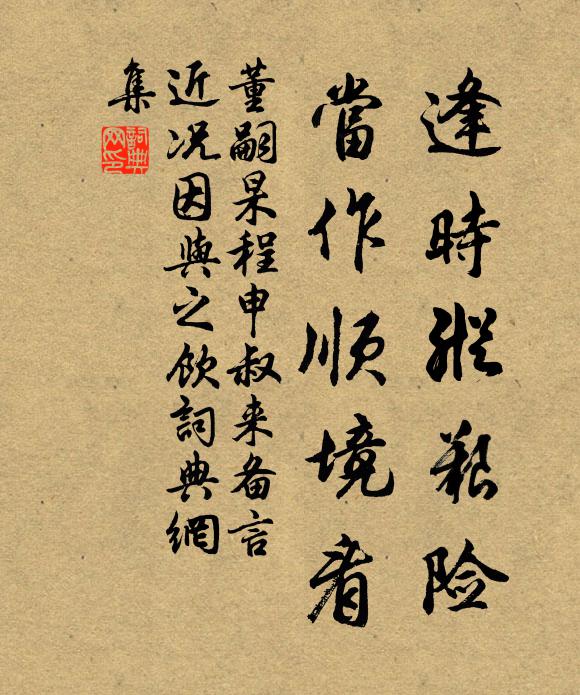 逢時縱艱险
當作順境看
董嗣杲程申叔来备言
近况因與之飲詞典網
集
詞典
网印